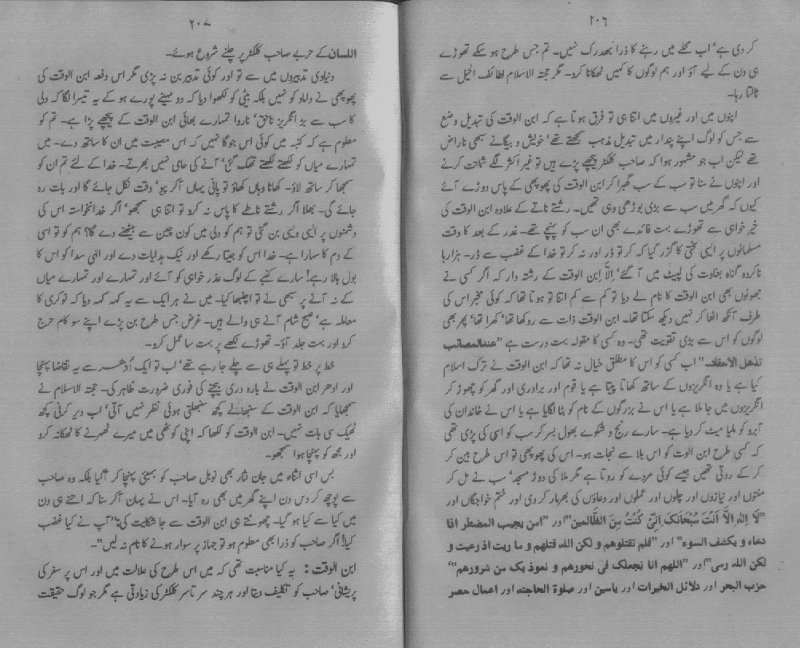 ۲۰۶
کر دی ہے' اب گلے میں رہنے کا ذرا بھدرک نہیں۔ تم جس طرح ہو سکے تھوڑے
ہی دن کے لیے آؤ اور ہم لوگوں کا کہیں ٹھکانا کرو۔ مگر حجتہ الاسلام لطائف الحیل سے
ٹالتا رہا۔
اپنوں میں اور غیروں میں اتنا ہی تو فرق ہوتا ہے کہ ابن الوقت کی تبدیل وضع
سے جس کو لوگ اپنے پندار میں تبدیل مذہب سمجھتے تھے' خویش و بیگانے سبھی ناراض
تھے لیکن اب جو مشہور ہوا کہ صاحب کلکٹر پیچھے پڑے ہیں تو غیر اکثر لگے شماتت کرنے
اور اپنوں نے سنا تو سب کے سب گھبرا کر ابن الوقت کی پھوپھی کے پاس دوڑے آئے
کیوں کہ گھر میں سب سے بڑی بوڑھی وہی تھیں۔ رشتے ناتے کے علاوہ ابن الوقت کی
خیر خواہی سے تھوڑے بہت فائدے بھی ان سب کو پہنچے تھے۔ غدر کے بعد کا وقت
مسلمانوں پر ایسی سختی کا گزر گیا کہ کر تو ڈر اور نہ کر تو خدا کے غضب سے ڈر۔ ہزارہا
ناکردہ گناہ بغاوت کی لپیٹ میں آ گئے' اِلّا ابن الوقت کے رشتہ دار کہ اگر کسی نے
جھوٹوں بھی ابن الوقت کا نام لے دیا تو کم سے کم اتنا تو ہوتا تھا کہ کوئی مخبر اس کی
طرف آنکھ اٹھا کر نہیں دیکھ سکتا تھا۔ ابن الوقت ذات سے روکھا تھا' کھرا تھا' پھر بھی
لوگوں کو اس سے بڑی تقویت تھی۔ وہ کسی کا مقولہ بہت درست ہے "عند المصائب
تذھل الاحقاد۔" اب کسی کو اس کا مطلق خیال نہ تھا کہ ابن الوقت نے ترک اسلام
کیا ہے یا وہ انگریزوں کے ساتھ کھاتا پیتا ہے یا قوم اور برادری اور گھر کو چھوڑ کر
انگریزوں میں جا ملا ہے یا اس نے بزرگوں کے نام کو بٹا لگایا ہے یا اس نے خاندان کی
آبرو کو ملیا میٹ کر دیا ہے۔ سارے رنج و شکوے بھول بسر کر سب کو اسی کی پڑی تھی
کہ کسی طرح ابن الوت کو اس بلا سے نجات ہو۔ اس کی پھوپھی تو اس طرح بین کر
کر کے روتی تھیں جیسے کوئی مردے کو روتا ہے مگر ملا کی دوڑ مسجد' سب نے مل کر
منتوں اور نیازوں اور چلوں اور عملوں اور دعاؤں کی بھرمار کر دی اور ختم خواجگاں اور
"لَا اِلٰہَ اِلَّا اَنْتَ سُبْحَانَکَ اِنِّی کُنْتُ مِنَ الظَّالِمِیْنَ" اور "امن یجیب المضطر اذا
دعاہ و یکشف السوء" اور "فلم تقتلوھم و لکن اللہ قتلھم و ما رمیت اذ رمیت و
لکن اللہ رمی" اور "اللھم انا نجعلک فی نحورھم و نعوذ بک من شرورھم"'
حزب البحر اور دلائل الخیرات اور یاسین اور صلوۃ الحاجتہ اور اعمال حصر
۲۰۷
اللسان کے حربے صاحب کلکٹر پر چلنے شروع ہوئے۔
دنیاوی تدبیروں میں سے تو اور کوئی تدبیر بن نہ پڑی مگر اس دفعہ ابن الوقت کی
پھوپھی نے داماد کو نہیں بلکہ بیٹی کو لکھوا دیا کہ دو مہینے پورے ہو کے یہ تیسرا لگا کہ دلی
کا سب سے بڑ انگریز ناحق' ناروا تمہارے بھائی ابن الوقت کے پیچھے پڑا ہے۔ تم کو
معلوم ہے کہ کنبہ میں کوئی اس جوگا نہیں کہ اس مصیبت میں ان کا ساتھ دے۔ میں
تمہارے میاں کو لکھتے لکھتے تھک گئی' آنے کی حامی نہیں بھرتے۔ خدا کے لئے تم ان کو
سمجھا کر ساتھ لاؤ۔ کھانا وہاں کھاؤ تو پانی یہاں آ کر پیو' وقت نکل جائے گا اور بات رہ
جائے گی۔ بھلا اگر رشتے ناطے کا پاس نہ کرو تو اتنا ہی سمجھو' اگر خدانخواستہ اس کی
دشمنوں پر ایسی ویسی بن گئی تو ہم کو دلی میں کون چین سے بیٹھنے دے گا؟ ہم کو تو اسی
کے دم کا سہارا ہے۔ خدا اس کو جیتا رکھے اور نیک ہدایات دے اور الٰہی سدا کو اس کا
بول بالا رہے! سارے کنبے کے لوگ عذر خواہی کو آئے اور تمہارے اور تمہارے میاں
کے نہ آنے پر سبھی نے تو اچنبھا کیا۔ میں نے ہر ایک سے یہ کہہ کہہ دیا کہ نوکری کا
معاملہ ہے' صبح شام آنے ہی والے ہیں۔ غرض جس طرح بن پڑے اپنے سو کام حرج
کرو اور بہت جلد آؤ۔ تھوڑے لکھے پر بہت سا عمل کرو۔
خط پر خط تو پہلے ہی سے چلے جا رہے تھے' اب تو ایک اُدھر سے یہ تقاضا پہنچا
اور ادھر ابن الوقت نے بارہ دری بیچنے کی فوری ضرورت ظاہر کی۔ حجتہ الاسلام نے
سمجھایا کہ ابن الوقت کے سنبھالے کچھ سنبھلتی ہوئی نظر نہیں آتی' اب دیر کرنی کچھ
ٹھیک سی بات نہیں۔ ابن الوقت کو لکھا کہ اپنی کوٹھی میں میرے ٹھہرنے کا ٹھکانہ کرو
اور مجھ کو پہنچا ہوا سمجھو۔
بس اسی اثناء میں جان نثار بھی نوبل صاحب کو بمبئی پہنچا کر آ گیا بلکہ وہ صاحب
سے پوچھ کر دس دن اپنے گھر میں بھی رہ آیا۔ اس نے یہاں آ کر سنا کہ اتنے ہی دن
میں کیا سے کیا ہو گیا۔ چھوٹتے ہی ابن الوقت سے جا شکایت کی: "آپ نے کیا غضب
کیا! اگر صاحب کو ذرا بھی معلوم ہو تو جہاز پر سوار ہونے کا نام نہ لیں"۔
ابن الوقت : یہ کیا مناسبت تھی کہ میں اس طرح کی علالت میں اور اس پر سفر کی
پریشانی' صاحب کو تکلیف دیتا اور ہر چند سر تا سر کلکٹر کی زیادتی ہے مگر جو لوگ حقیقت